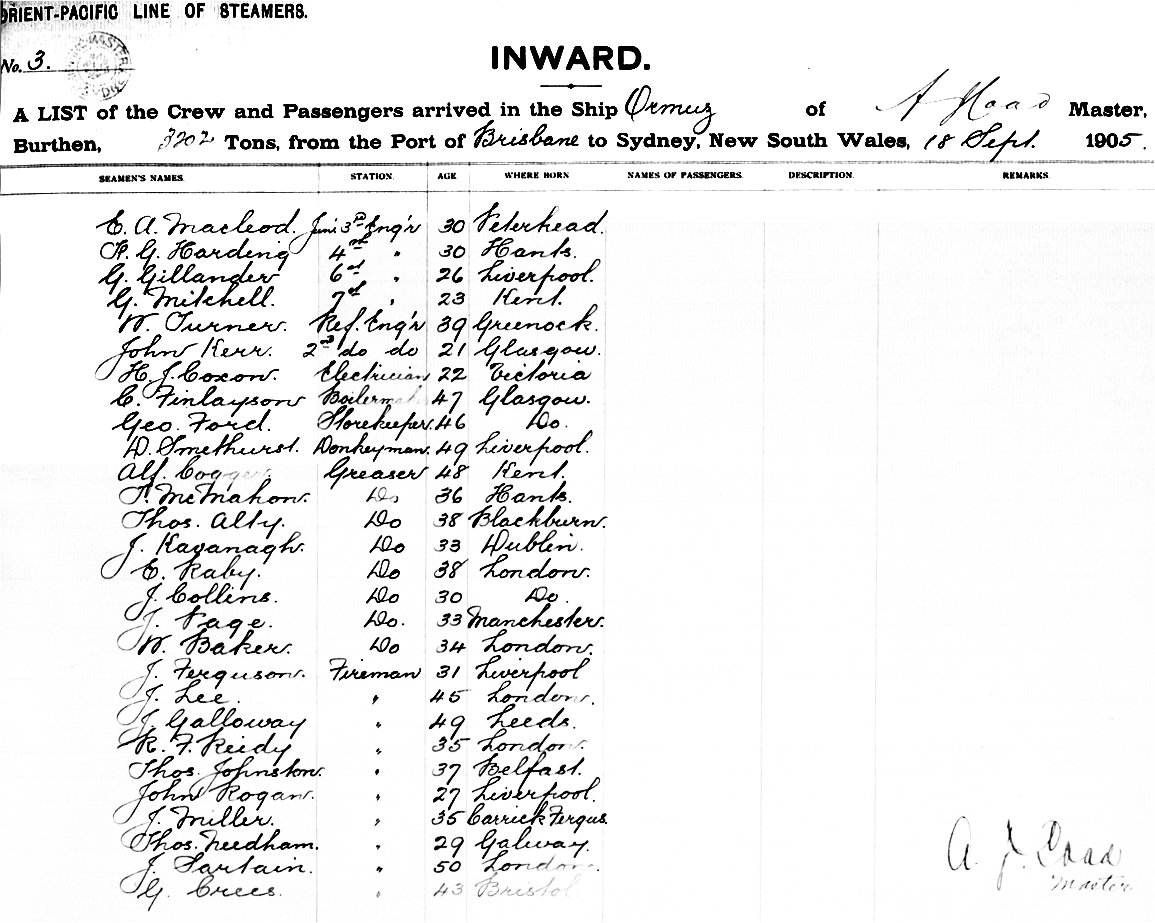 ORIENT-PACIFIC LINE OF STEAMERS.
No. 3.
INWARD.
A LIST of the Crew and Passengers arrived in the Ship Ormuz of Master,
Burthen, 3202 Tons, from the Port of Brisbane to Sydney, New South Wales, 18 Sept. 1905.
SEAMEN'S NAMES. STATION. AGE WHERE BORN NAMES OF PASSENGERS. DESCRIPTION. REMARKS.
E. A. Macleod. Juni 3rd Eng'r 30 Peterhead.
G. Harding 4 " 30 Hants.
G. Gillander 6 " 26 Liverpool.
G. Mitchell. 7 " 23 Kent.
W. Turner. Ref. Eng'r 39 Greenock.
John Kerr. 2nd do do 21 Glasgow.
H. J. Coxon. Electrician 22 Victoria
C. Finlayson Boilermak 47 Glasgow.
Geo. Ford. Storekeeper. 46 Do.
D. Smethurst. Donkeyman. 49 Liverpool.
Alf. Cogger Greaser 48 Kent.
McMahon. Do 36 Hants.
Thos. Alty. Do 38 Blackburn.
J. Kavanagh. Do 33 Dublin.
E. Raby. Do 38 London.
J. Collins. Do 30 Do.
J. Page. Do. 33 Manchester.
W. Baker. Do 34 London.
J. Ferguson. Fireman 31 Liverpool
J. Lee. " 45 London.
J. Galloway " 49 Leeds.
R. F. Reidy " 35 London.
Thos. Johnston. " 37 Belfast.
John Rogan. " 27 Liverpool.
J. Miller. " 35 Carrick Fergus.
Thos. Needham. " 29 Galway.
J. Sartain. " 50 London.
G. Crees. " 43 Bristol.
A. J. Coad
Master